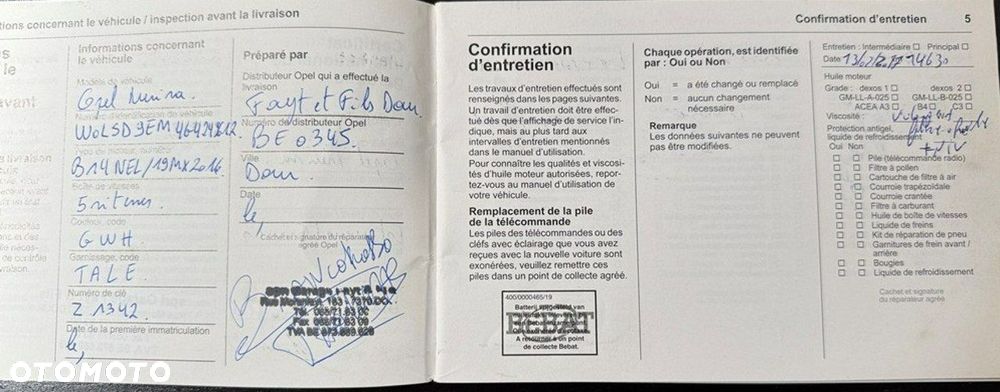 tions concernant le véhicule / inspection avant la livraison
Informations concernant
le véhicule
Modèle de véhicule
Opel Meriva.
Numéro d'identification du véhicule
Type de moteur, numéro
B14NEL/19MX2016.
Boîte de vitesses
5 vitesses.
Couleur, code
GWH.
Garnissage, code
TALE.
Numéro de clé
Z 1342.
Date de la première immatriculation
le,
Préparé par
Distributeur Opel qui a effectué la
livraison
Fayt et Fils Dour
Numéro de distributeur Opel
BE 0345.
Ville
Dour.
Date
le,
Cachet et signature du réparateur
agréé Opel
Confirmation d'entretien 5
Confirmation
d'entretien
Les travaux d'entretien effectués sont
renseignés dans les pages suivantes.
Un travail d'entretien doit être effec-
tué dès que l'affichage de service l'in-
dique, mais au plus tard aux
intervalles d'entretien mentionnés
dans le manuel d'utilisation.
Pour connaître les qualités et viscosi-
tés d'huile moteur autorisées, repor-
tez-vous au manuel d'utilisation de
votre véhicule.
Remplacement de la pile
de la télécommande
Les piles des télécommandes ou des
clefs avec éclairage que vous avez
reçues avec la nouvelle voiture sont
exonérées, veuillez remettre ces
piles dans un point de collecte agréé.
400/0000465/19
BEBAT
A retourner à un point
de collecte Bebat.
Chaque opération, est identifiée
par : Oui ou Non
Oui = a été changé ou remplacé
Non = aucun changement
nécessaire
Remarque
Les données suivantes ne peuvent
pas être modifiées.
Entretien : Intermédiaire ☐ Principal ☐
Date 13/07/2017 14630
Huile moteur
Grade : dexos 1 ☐ dexos 2 ☐
GM-LL-A-025 ☐ GM-LL-B-025 ☐
ACEA A3 ☐ /B4 ☐ C3 ☐
Viscosité :
Protection antigel,
liquide de refroidissement
Oui Non
☐ ☐ Pile (télécommande radio)
☐ ☐ Filtre à pollen
☐ ☐ Cartouche de filtre à air
☐ ☐ Courroie trapézoïdale
☐ ☐ Courroie crantée
☐ ☐ Filtre à carburant
☐ ☐ Huile de boîte de vitesses
☐ ☐ Liquide de freins
☐ ☐ Kit de réparation de pneu
☐ ☐ Garnitures de frein avant /
arrière
☐ ☐ Bougies
☐ ☐ Liquide de refroidissement
Cachet et signature
du réparateur agréé
OTOMOTO